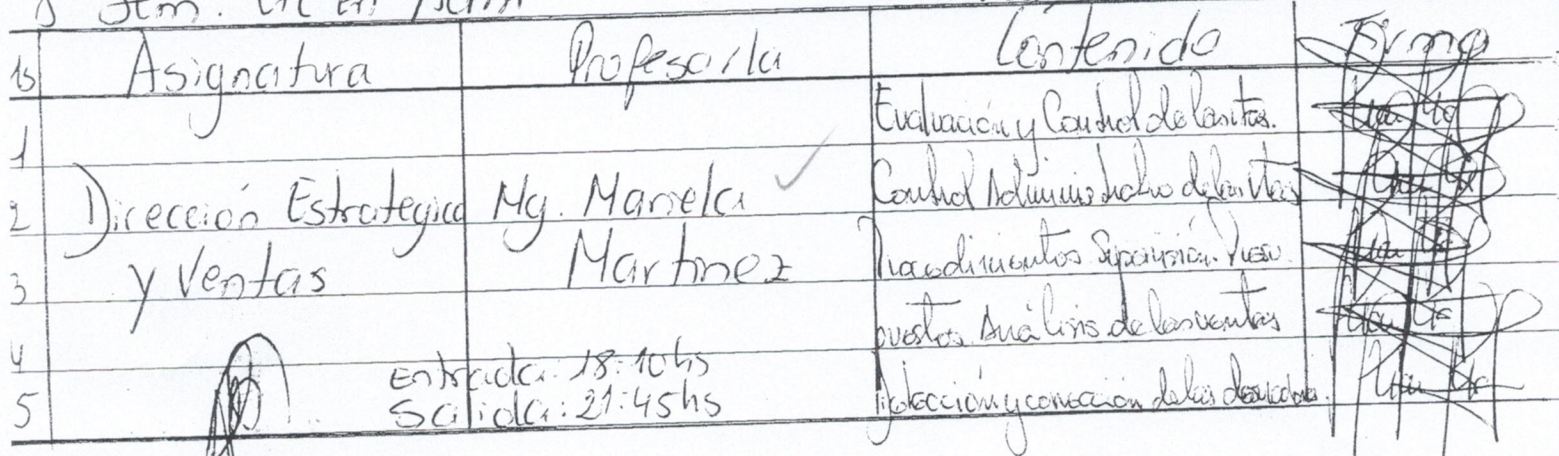 Hs Asignatura Profesor/a Contenido Firma
1 Evaluación y Control de las vtas.
2 Dirección Estratégica Mg. Mariela Control Administrativo de las vtas
3 y Ventas Martínez Procedimientos Supervisión. Presu
4 puestos Análisis de las ventas
Entrada: 18:10hs
5 Salida: 21:45hs Detección y corrección de las